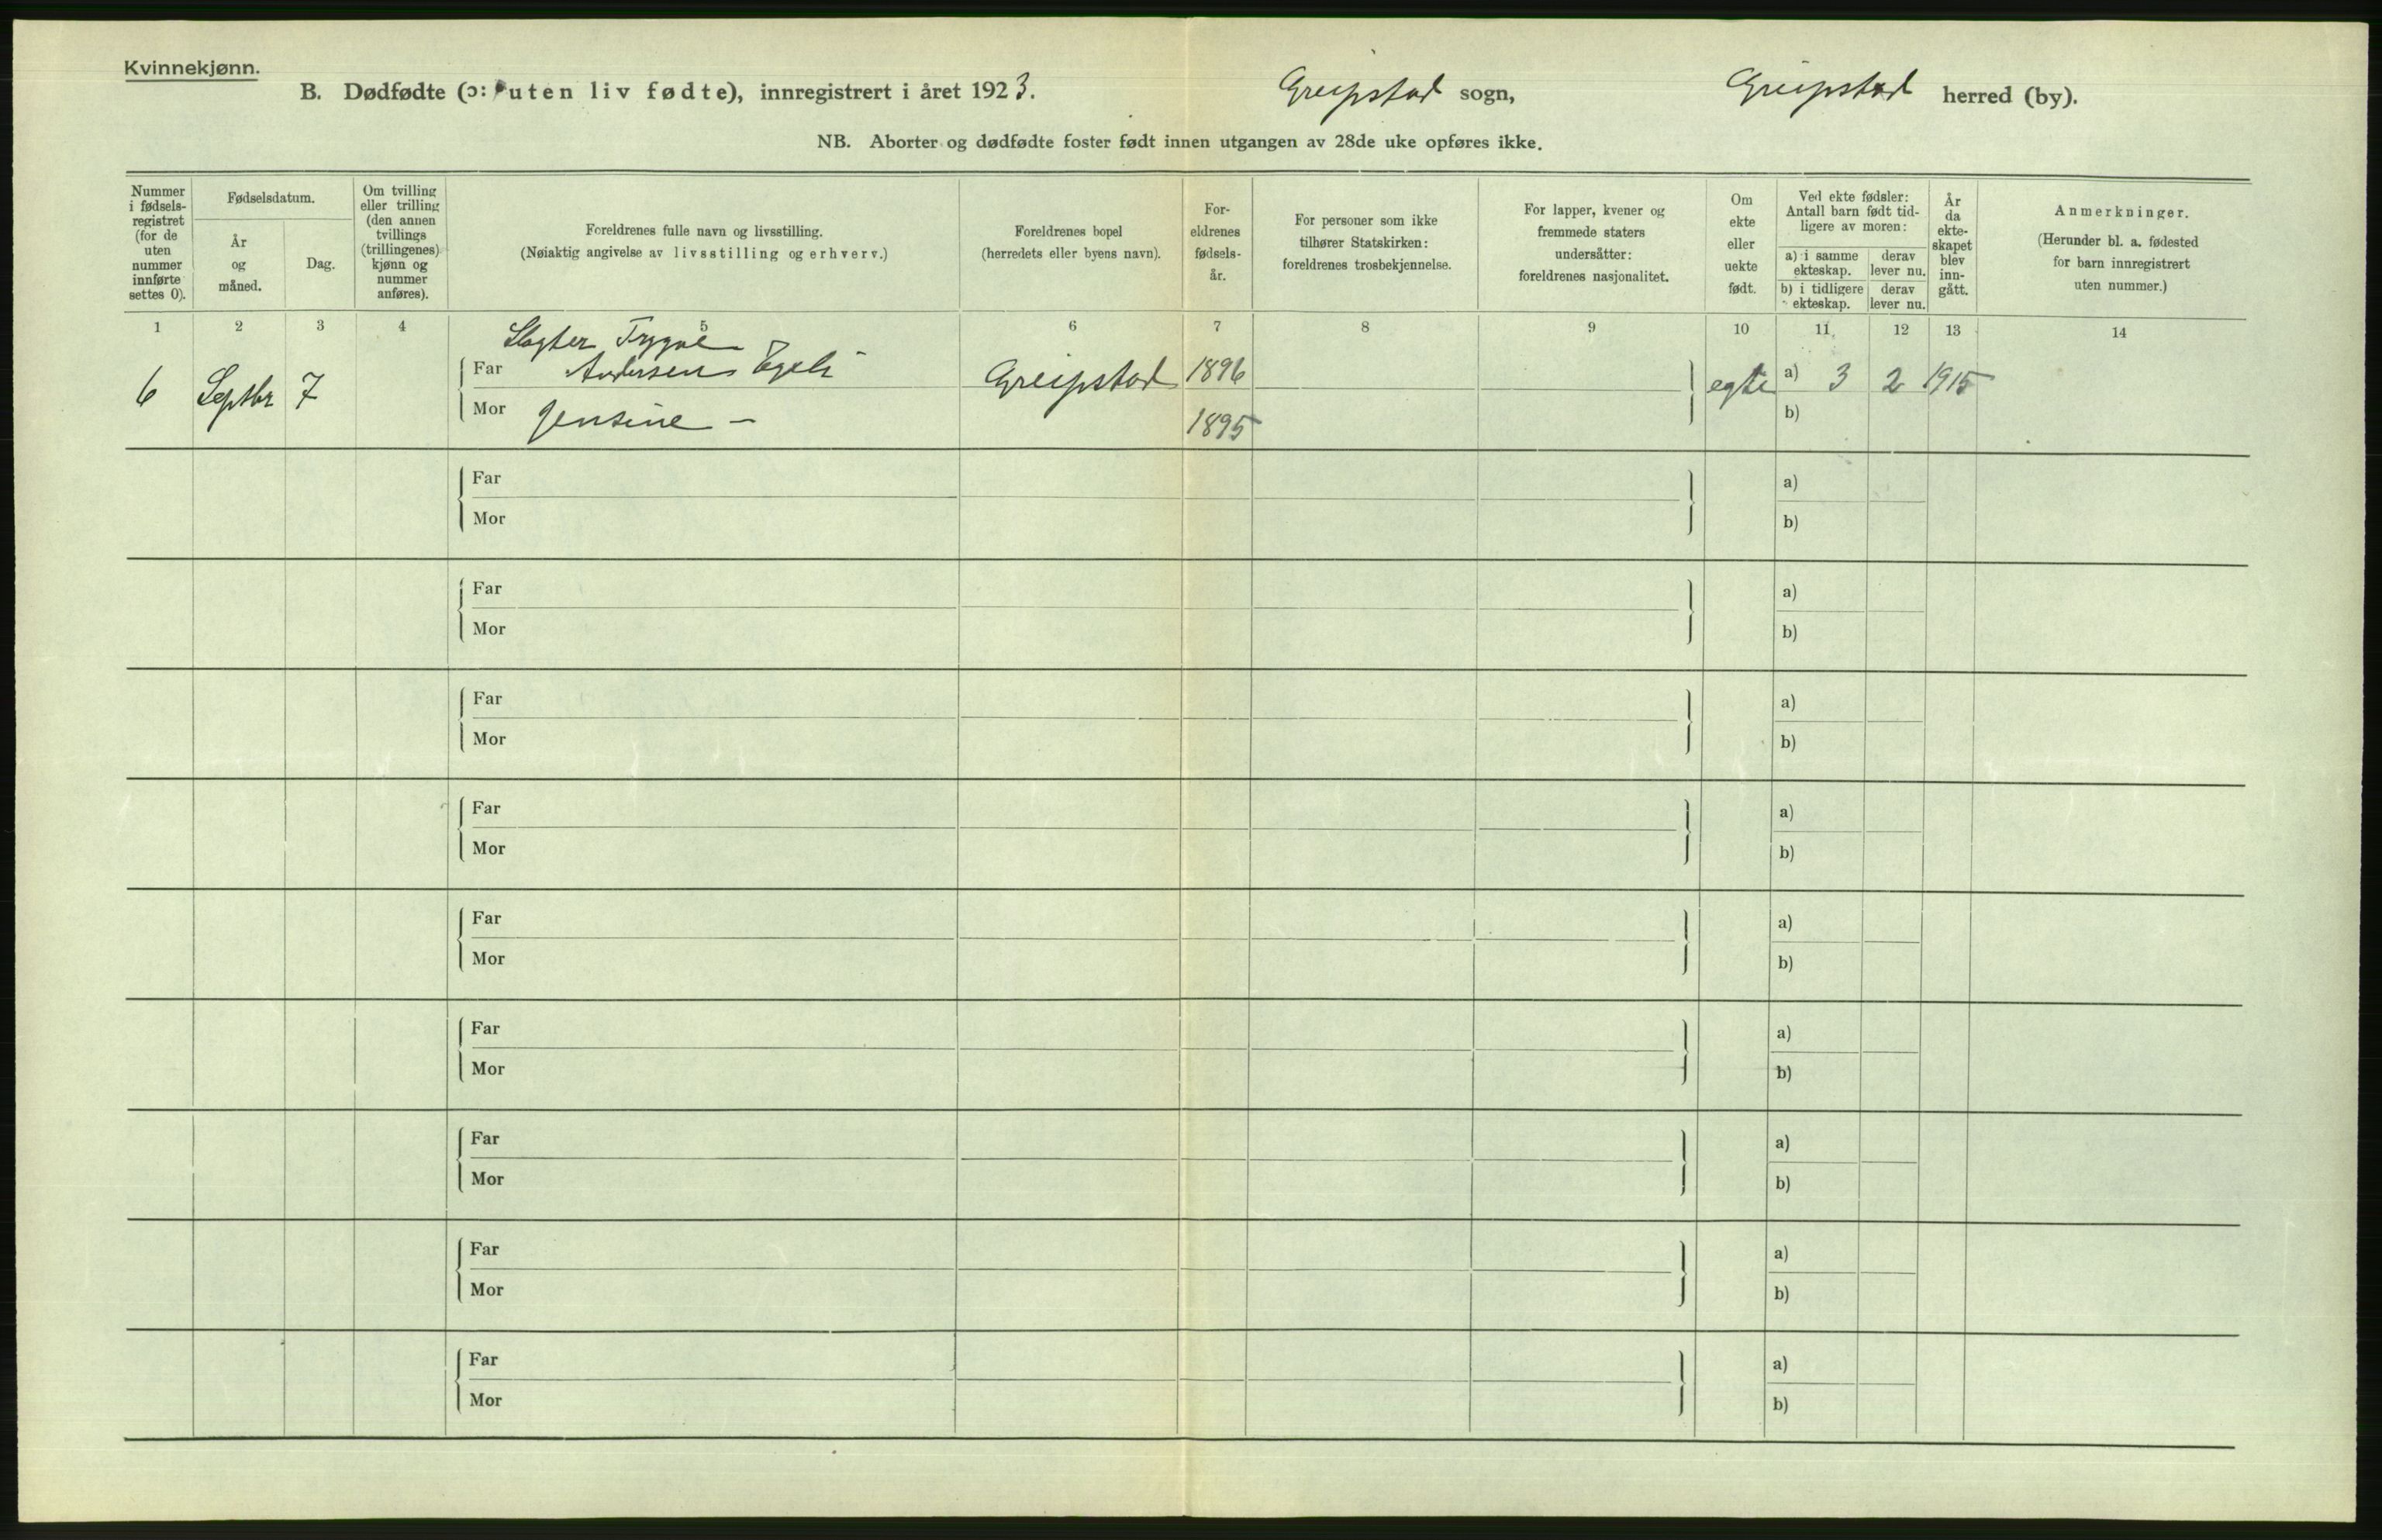 Kvinnekjønn.
B. Dødfødte (ɔ: uten liv fødte), innregistrert i året 1923. Greipstad sogn, Greipstad herred (by).
NB. Aborter og dødfødte foster født innen utgangen av 28de uke opføres ikke.
Nummer i fødsels-registret (for de uten nummer innførte settes 0).
Fødselsdatum.
År og måned.
Dag.
Om tvilling eller trilling (den annen tvillings (trillingenes) kjønn og nummer anføres).
Foreldrenes fulle navn og livsstilling.
(Nøiaktig angivelse av livsstilling og erhverv.)
Foreldrenes bopel
(herredets eller byens navn).
For-eldrenes fødsels-år.
For personer som ikke tilhører Statskirken: foreldrenes trosbekjennelse.
For lapper, kvener og fremmede staters undersåtter: foreldrenes nasjonalitet.
Om ekte eller uekte født.
Ved ekte fødsler: Antall barn født tid-ligere av moren:
a) i samme ekteskap. derav lever nu.
b) i tidligere ekteskap. derav lever nu.
År da ekte-skapet blev inn-gått.
Anmerkninger.
(Herunder bl. a. fødested for barn innregistrert uten nummer.)
1 2 3 4 5 6 7 8 9 10 11 12 13 14
Slagter Trygve
6 Septbr 7 Far Andersen Egeli Greipstad 1896 egte a) 3 2 1915
Mor Jensine — 1895 b)
Far a)
Mor b)
Far a)
Mor b)
Far a)
Mor b)
Far a)
Mor b)
Far a)
Mor b)
Far a)
Mor b)
Far a)
Mor b)
Far a)
Mor b)
Far a)
Mor b)